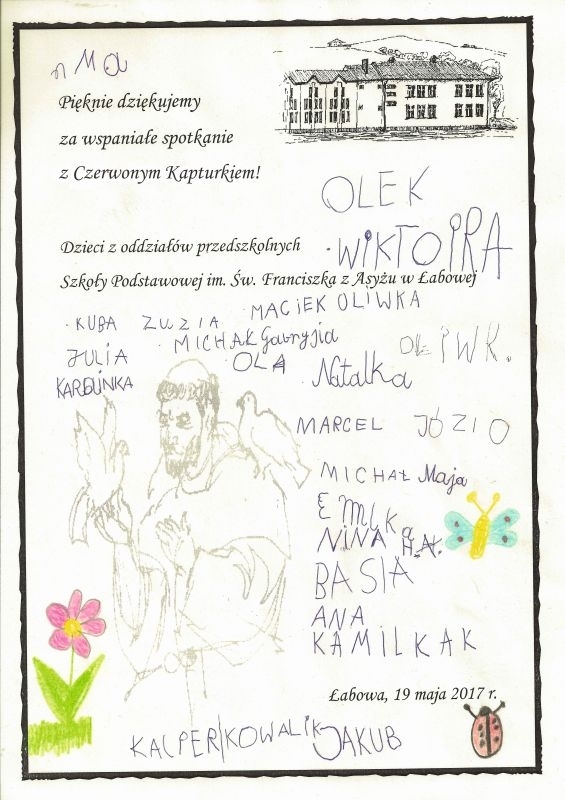 n Ma
Pięknie dziękujemy
za wspaniałe spotkanie
z Czerwonym Kapturkiem!
OLEK
Dzieci z oddziałów przedszkolnych
WIKTOIRA
Szkoły Podstawowej im. Św. Franciszka z Asyżu w Łabowej
MACIEK OLIWKA
KUBA ZUZIA
MICHAŁ Gavryjia
JULIA OLA
KAROLINKA Natalka
MARCEL JÓZIO
MICHAŁ Maja
EMILKA
NINA H.A.
BASIA
ANA
KAMILKAK
Łabowa, 19 maja 2017 r.
KACPER KOWALIK JAKUB